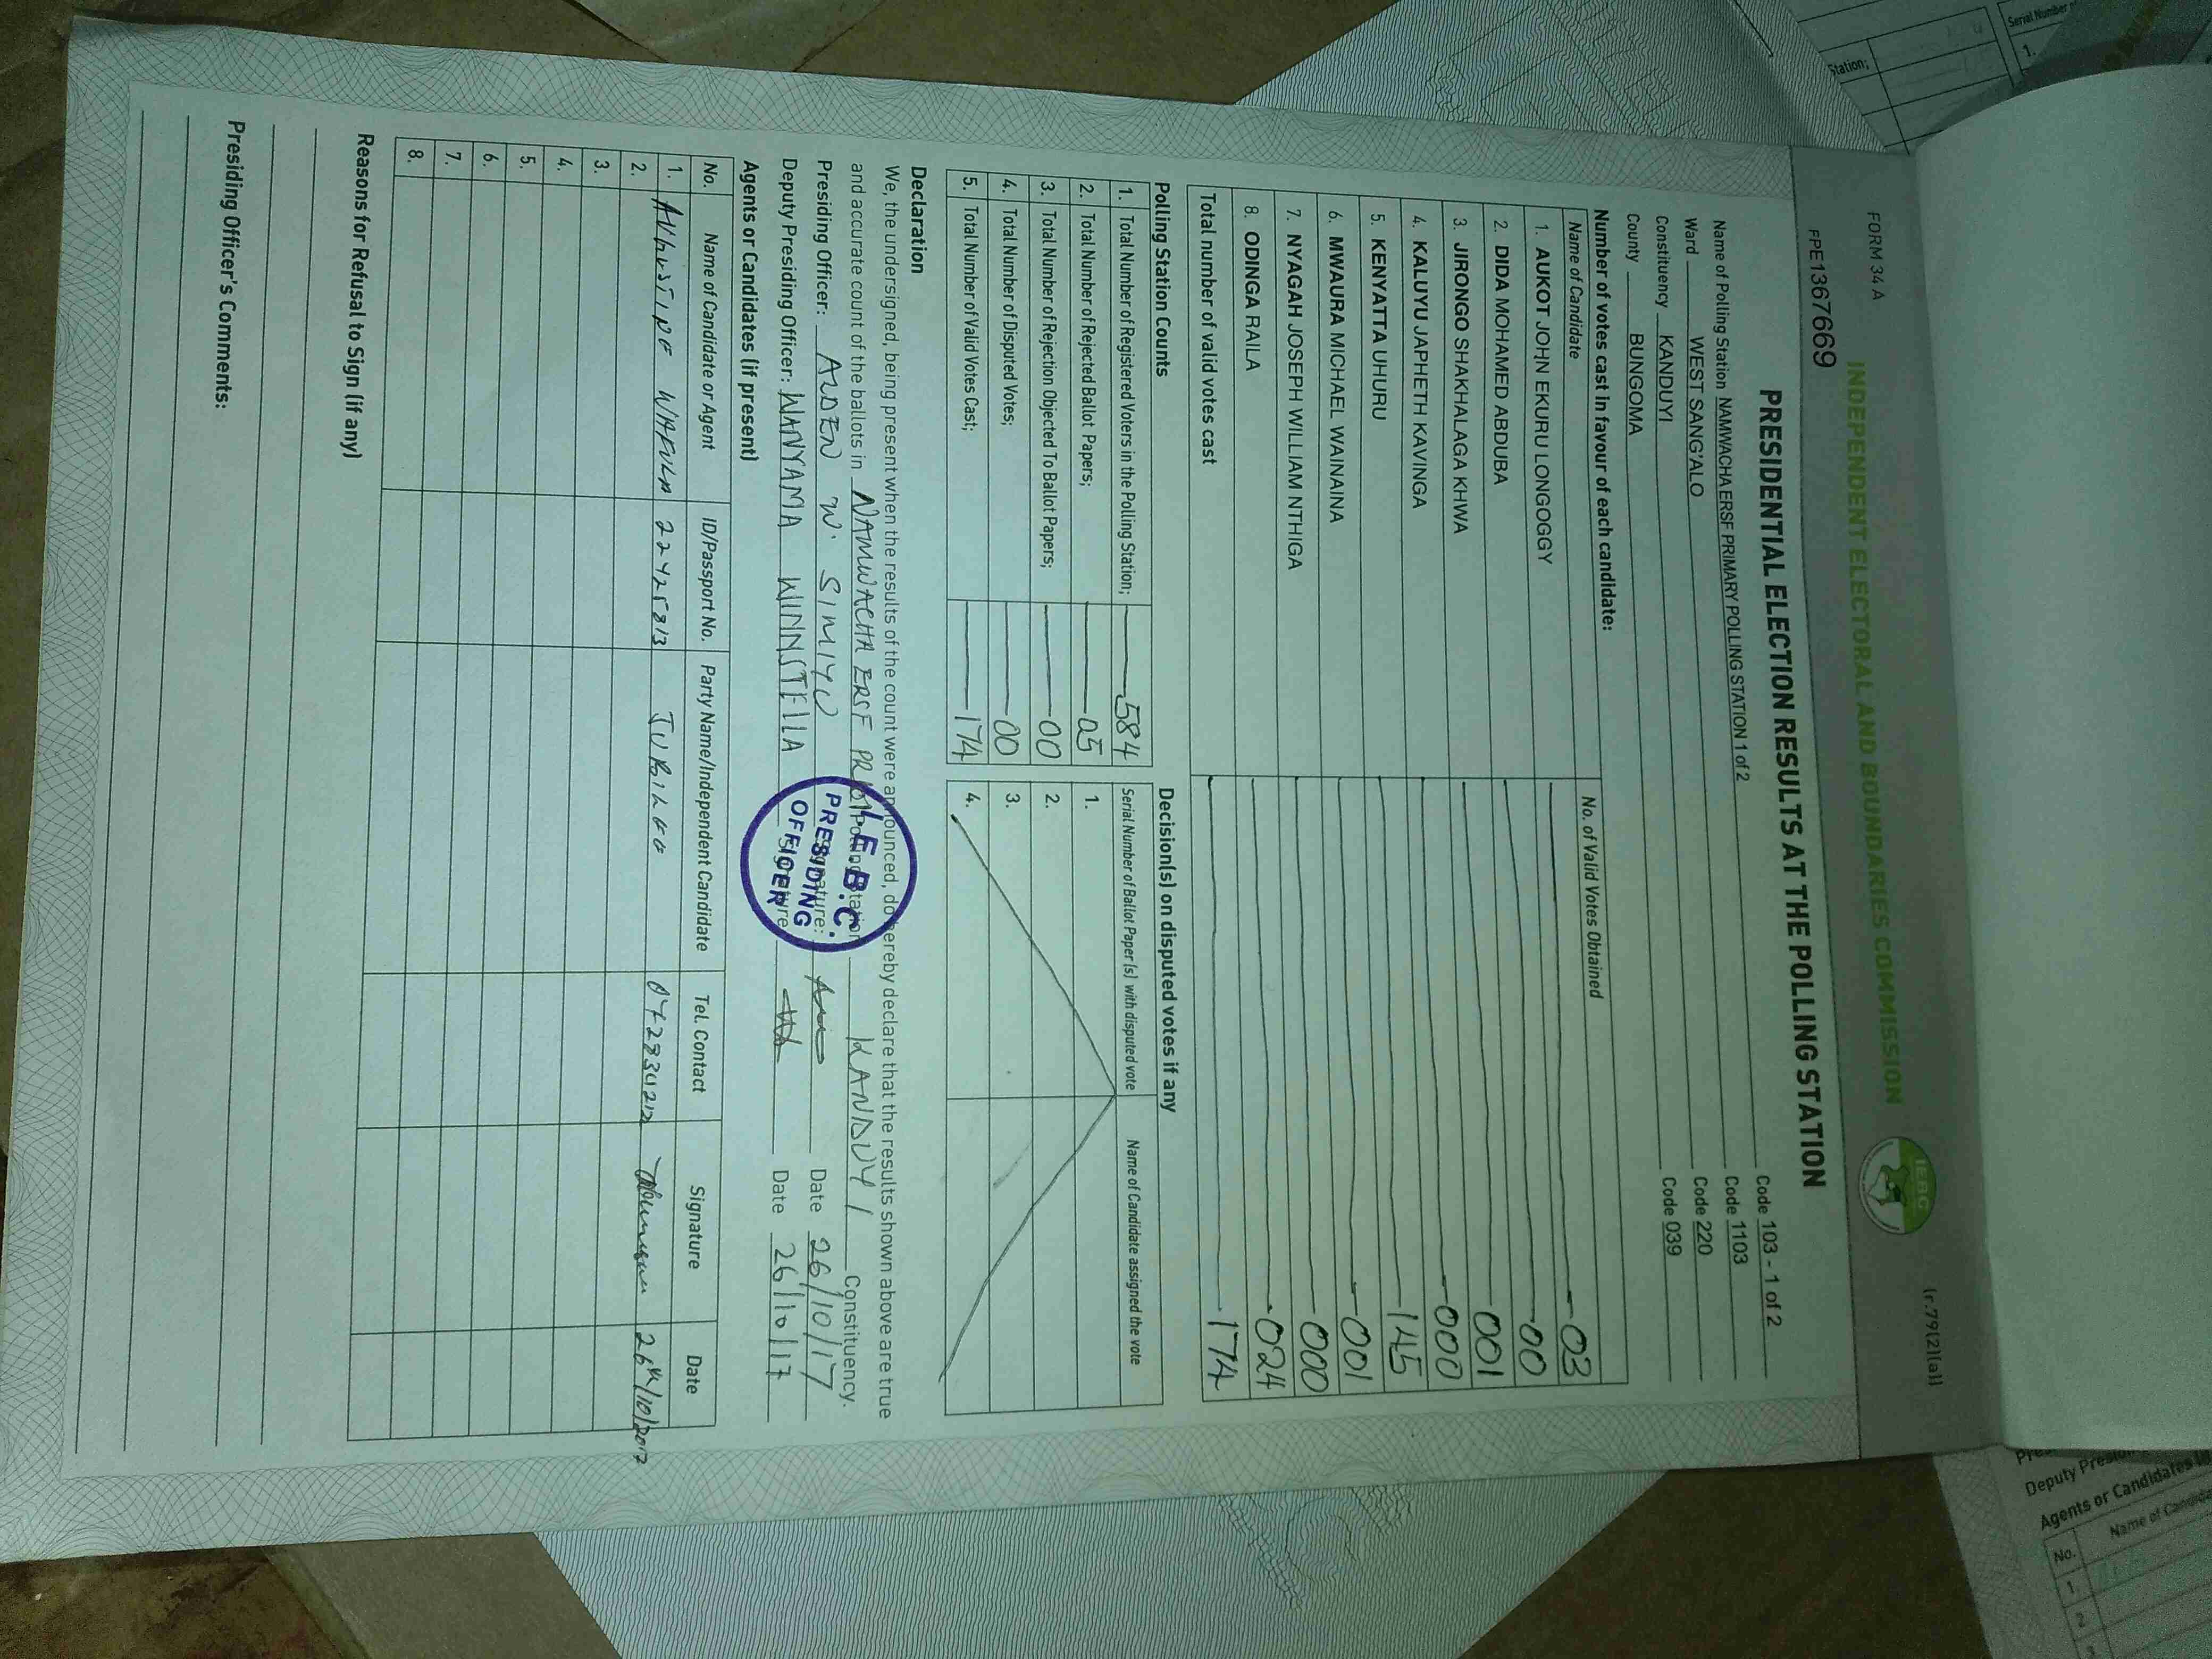 FORM 34 A
(r.79(2)(a))
INDEPENDENT ELECTORAL AND BOUNDARIES COMMISSION
IEBC
FPE1367669
PRESIDENTIAL ELECTION RESULTS AT THE POLLING STATION
Name of Polling Station NAMWACHA ERSF PRIMARY POLLING STATION 1 of 2 Code 103 - 1 of 2
Ward WEST SANG'ALO Code 1103
Constituency KANDUYI Code 220
County BUNGOMA Code 039
Number of votes cast in favour of each candidate:
Name of Candidate No. of Valid Votes Obtained
1. AUKOT JOHN EKURU LONGOGGY 03
2. DIDA MOHAMED ABDUBA 00
3. JIRONGO SHAKHALAGA KHWA 001
4. KALUYU JAPHETH KAVINGA 000
5. KENYATTA UHURU 145
6. MWAURA MICHAEL WAINAINA 001
7. NYAGAH JOSEPH WILLIAM NTHIGA 000
8. ODINGA RAILA 024
Total number of valid votes cast 174
Polling Station Counts
1. Total Number of Registered Voters in the Polling Station; 584
2. Total Number of Rejected Ballot Papers; 05
3. Total Number of Rejection Objected To Ballot Papers; 00
4. Total Number of Disputed Votes; 00
5. Total Number of Valid Votes Cast; 174
Decision(s) on disputed votes if any
Serial Number of Ballot Paper (s) with disputed vote Name of Candidate assigned the vote
1.
2.
3.
4.
Declaration
We, the undersigned, being present when the results of the count were announced, do hereby declare that the results shown above are true
and accurate count of the ballots in NAMWACHA ERSF PRI 01 Polling Station KANDUYI Constituency.
Presiding Officer: ALDEN W. SIMIYU Signature: Date 26/10/17
Deputy Presiding Officer: WANYAMA WINNSTELLA Signature Date 26/10/17
I.E.B.C.
PRESIDING
OFFICER
Agents or Candidates (if present)
No. Name of Candidate or Agent ID/Passport No. Party Name/Independent Candidate Tel. Contact Signature Date
1. WAFULA 22425813 26th/10/2017
2.
3.
4.
5.
6.
7.
8.
Reasons for Refusal to Sign (if any)
Presiding Officer's Comments:
Station;
Serial Number
1.
Deputy Presi
Agents or Candidates
No. Name of Candid
1
2